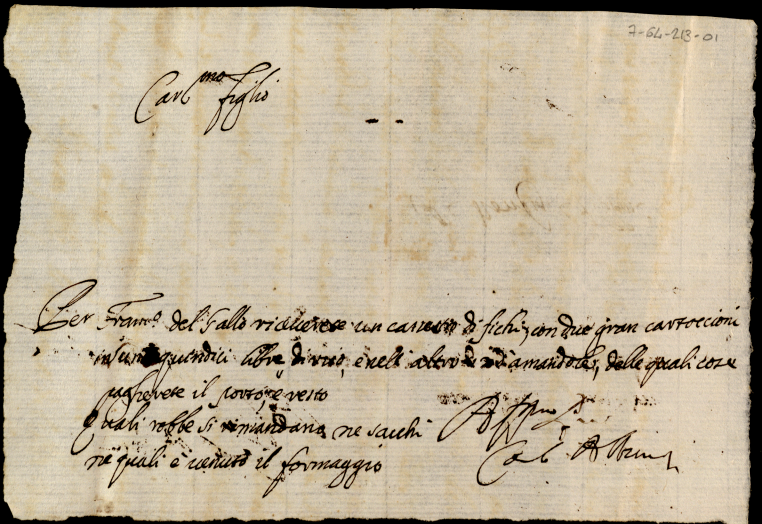 7-64-213-01
Carl.mo figlio
Per Fran.co del Gallo riceverete un canestro di fichi, con due gran cartoccioni
in uno quindici libre di riso, e nell' altro di amandole, delle quali cose
pagherete il porto, e resto
quali robbe si rimandano ne sacchi
ne quali è venuto il formaggio
Aff.mo P.